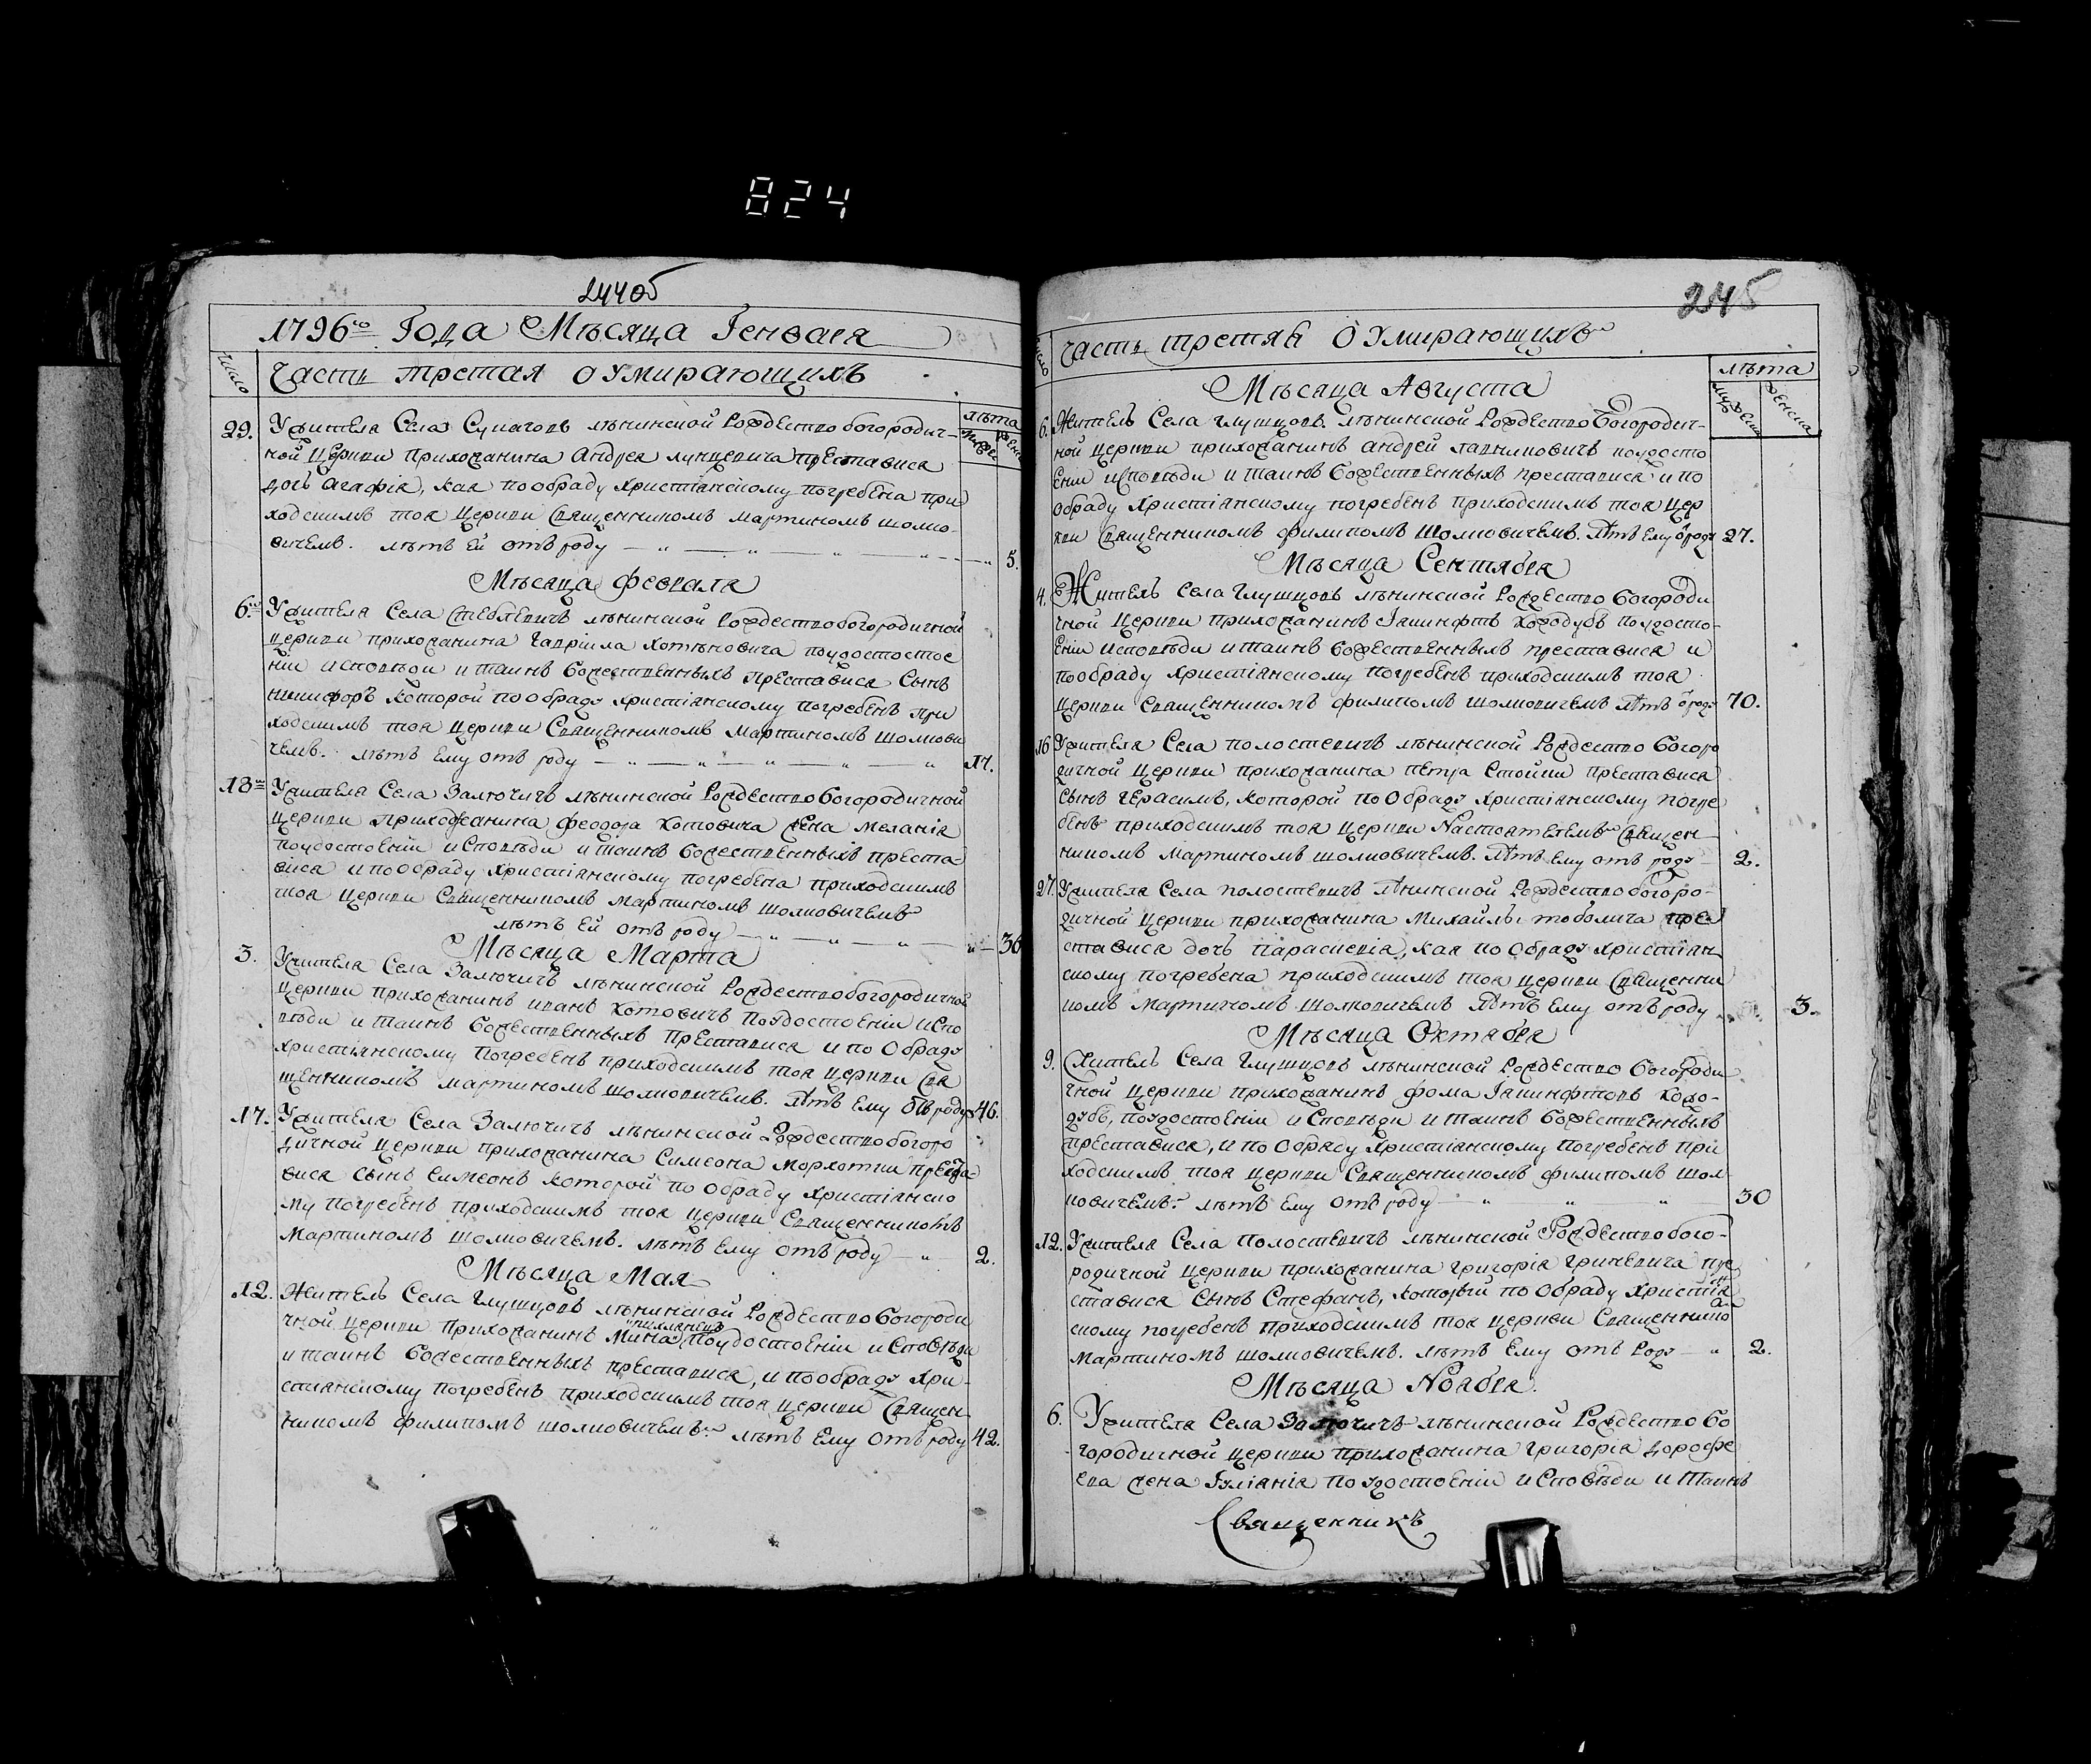 824
244об
1796го Года Мѣсяца Генваря
Число
Часть третая о умирающихъ
лѣта
29. У жителя Села лѣнинской Рождество богородич-
ной Церкви прихожанина Андрея лунцевича преставися
дочь агафія, кая по обряду христіанскому погребена при
ходскимъ тоя Церкви Священникомъ мартиномъ шолко-
вичемъ. лѣтъ ей отъ роду 5.
Мѣсяца февраля
6го У жителя Села лѣнинской Рождество богородичной
церкви прихожанина гавріила хотяновича поудостое
ніи исповѣди и таинъ божественныхъ преставися Сынъ
никифоръ которой по обряду христіанскому погребенъ при
ходскимъ тоя Церкви Священникомъ мартиномъ шолкови
чемъ. лѣтъ ему отъ роду 17.
18го У жителя Села Залючичъ лѣнинской Рождество богородичной
Церкви прихожанина феодора котовича жена меланія
поудостоеніи исповѣди и таинъ божественныхъ преста-
вися и по обряду христіанскому погребена приходскимъ
тоя Церкви Священникомъ мартиномъ шолковичемъ
лѣтъ ей отъ роду 36
Мѣсяца Марта
3. У жителя Села Залючичъ лѣнинской Рождество богородичной
Церкви прихожанинъ иванъ котовичъ поудостоеніи испо
вѣди и таинъ божественныхъ преставися и по обряду
христіанскому погребенъ приходскимъ тоя церкви Свя
щенникомъ мартиномъ шолковичемъ. лѣтъ ему отъ роду 46.
17. У жителя Села Залючичъ лѣнинской Рождество богоро
дичной Церкви прихожанина Симеона морхотки преста-
вися сынъ симеонъ которой по обряду христіанско
му погребенъ приходскимъ тоя церкви Священникомъ
мартиномъ шолковичемъ. лѣтъ ему отъ роду 2.
Мѣсяца Мая
12. Житель Села глушцовъ лѣнинской Рождество богороди
чной Церкви прихожанинъ Мина поудостоеніи исповѣди
и таинъ божественныхъ преставися, и по обряду хри-
стианскому погребенъ приходскимъ тоя Церкви Священ
никомъ филипомъ шолковичемъ. лѣтъ ему отъ роду 42.
245
Число
Часть третяя о умирающихъ
лѣта
мужеска
женска
Мѣсяца Августа
6. Житель Села глушцовъ лѣнинской Рождество Богородич-
ной церкви прихожанинъ андрей поудосто
еніи исповѣди и таинъ божественныхъ преставися и по
обряду христіанскому погребенъ приходскимъ тоя Цер
кви Священникомъ филипомъ шолковичемъ. лѣтъ ему ѿ роду 27.
Мѣсяца Сентября
4. Житель Села глушцовъ лѣнинской Рождество богороди
чной Церкви прихожанинъ Іакинфтъ колодубъ поудосто-
еніи исповѣди и таинъ божественныхъ преставися и
по обряду христіанскому погребенъ приходскимъ тоя
церкви Священникомъ филипомъ шолковичемъ лѣтъ ѿ роду 70.
16 У жителя Села полостевичъ лѣнинской Рождество богоро
дичной Церкви прихожанина петра Стойки преставися
сынъ герасимъ, которой по обряду христіанскому погре
бенъ приходскимъ тоя Церкви Настоятелемъ Священ
никомъ мартиномъ шолковичемъ. лѣтъ ему отъ роду 2.
27. У жителя Села полостевичъ лѣнинской Рождество богоро-
дичной церкви прихожанина михайлы тоболича пре-
ставися дочъ параскевія, кая по обряду христіан
скому погребена приходскимъ тоя церкви Священни
комъ мартиномъ шолковичемъ лѣтъ ему отъ роду 3.
Мѣсяца Октября
9. Житель Села глушцовъ лѣнинской Рождество богороди
чной Церкви прихожанинъ фома Іакинфтовъ коло-
дубъ, поудостоеніи исповѣди и таинъ божественныхъ
преставися, и по обряду христіанскому погребенъ при
ходскимъ тоя церкви Священникомъ филипомъ шол-
ковичемъ. лѣтъ ему отъ роду 30
12. У жителя Села полостевичъ лѣнинской Рождество бого-
родичной церкви прихожанина григорія гриневича пре
ставися сынъ Стефанъ, который по обряду христіан
скому погребенъ приходскимъ тоя церкви Священнико
мартиномъ шолковичемъ. лѣтъ ему отъ роду 2.
Мѣсяца Ноября.
6. У жителя Села Залючичъ лѣнинской Рождество бо
городичной церкви прихожанина григорія дорофе
ева жена Іуліанія поудостоеніи исповѣди и таинъ
Священникъ